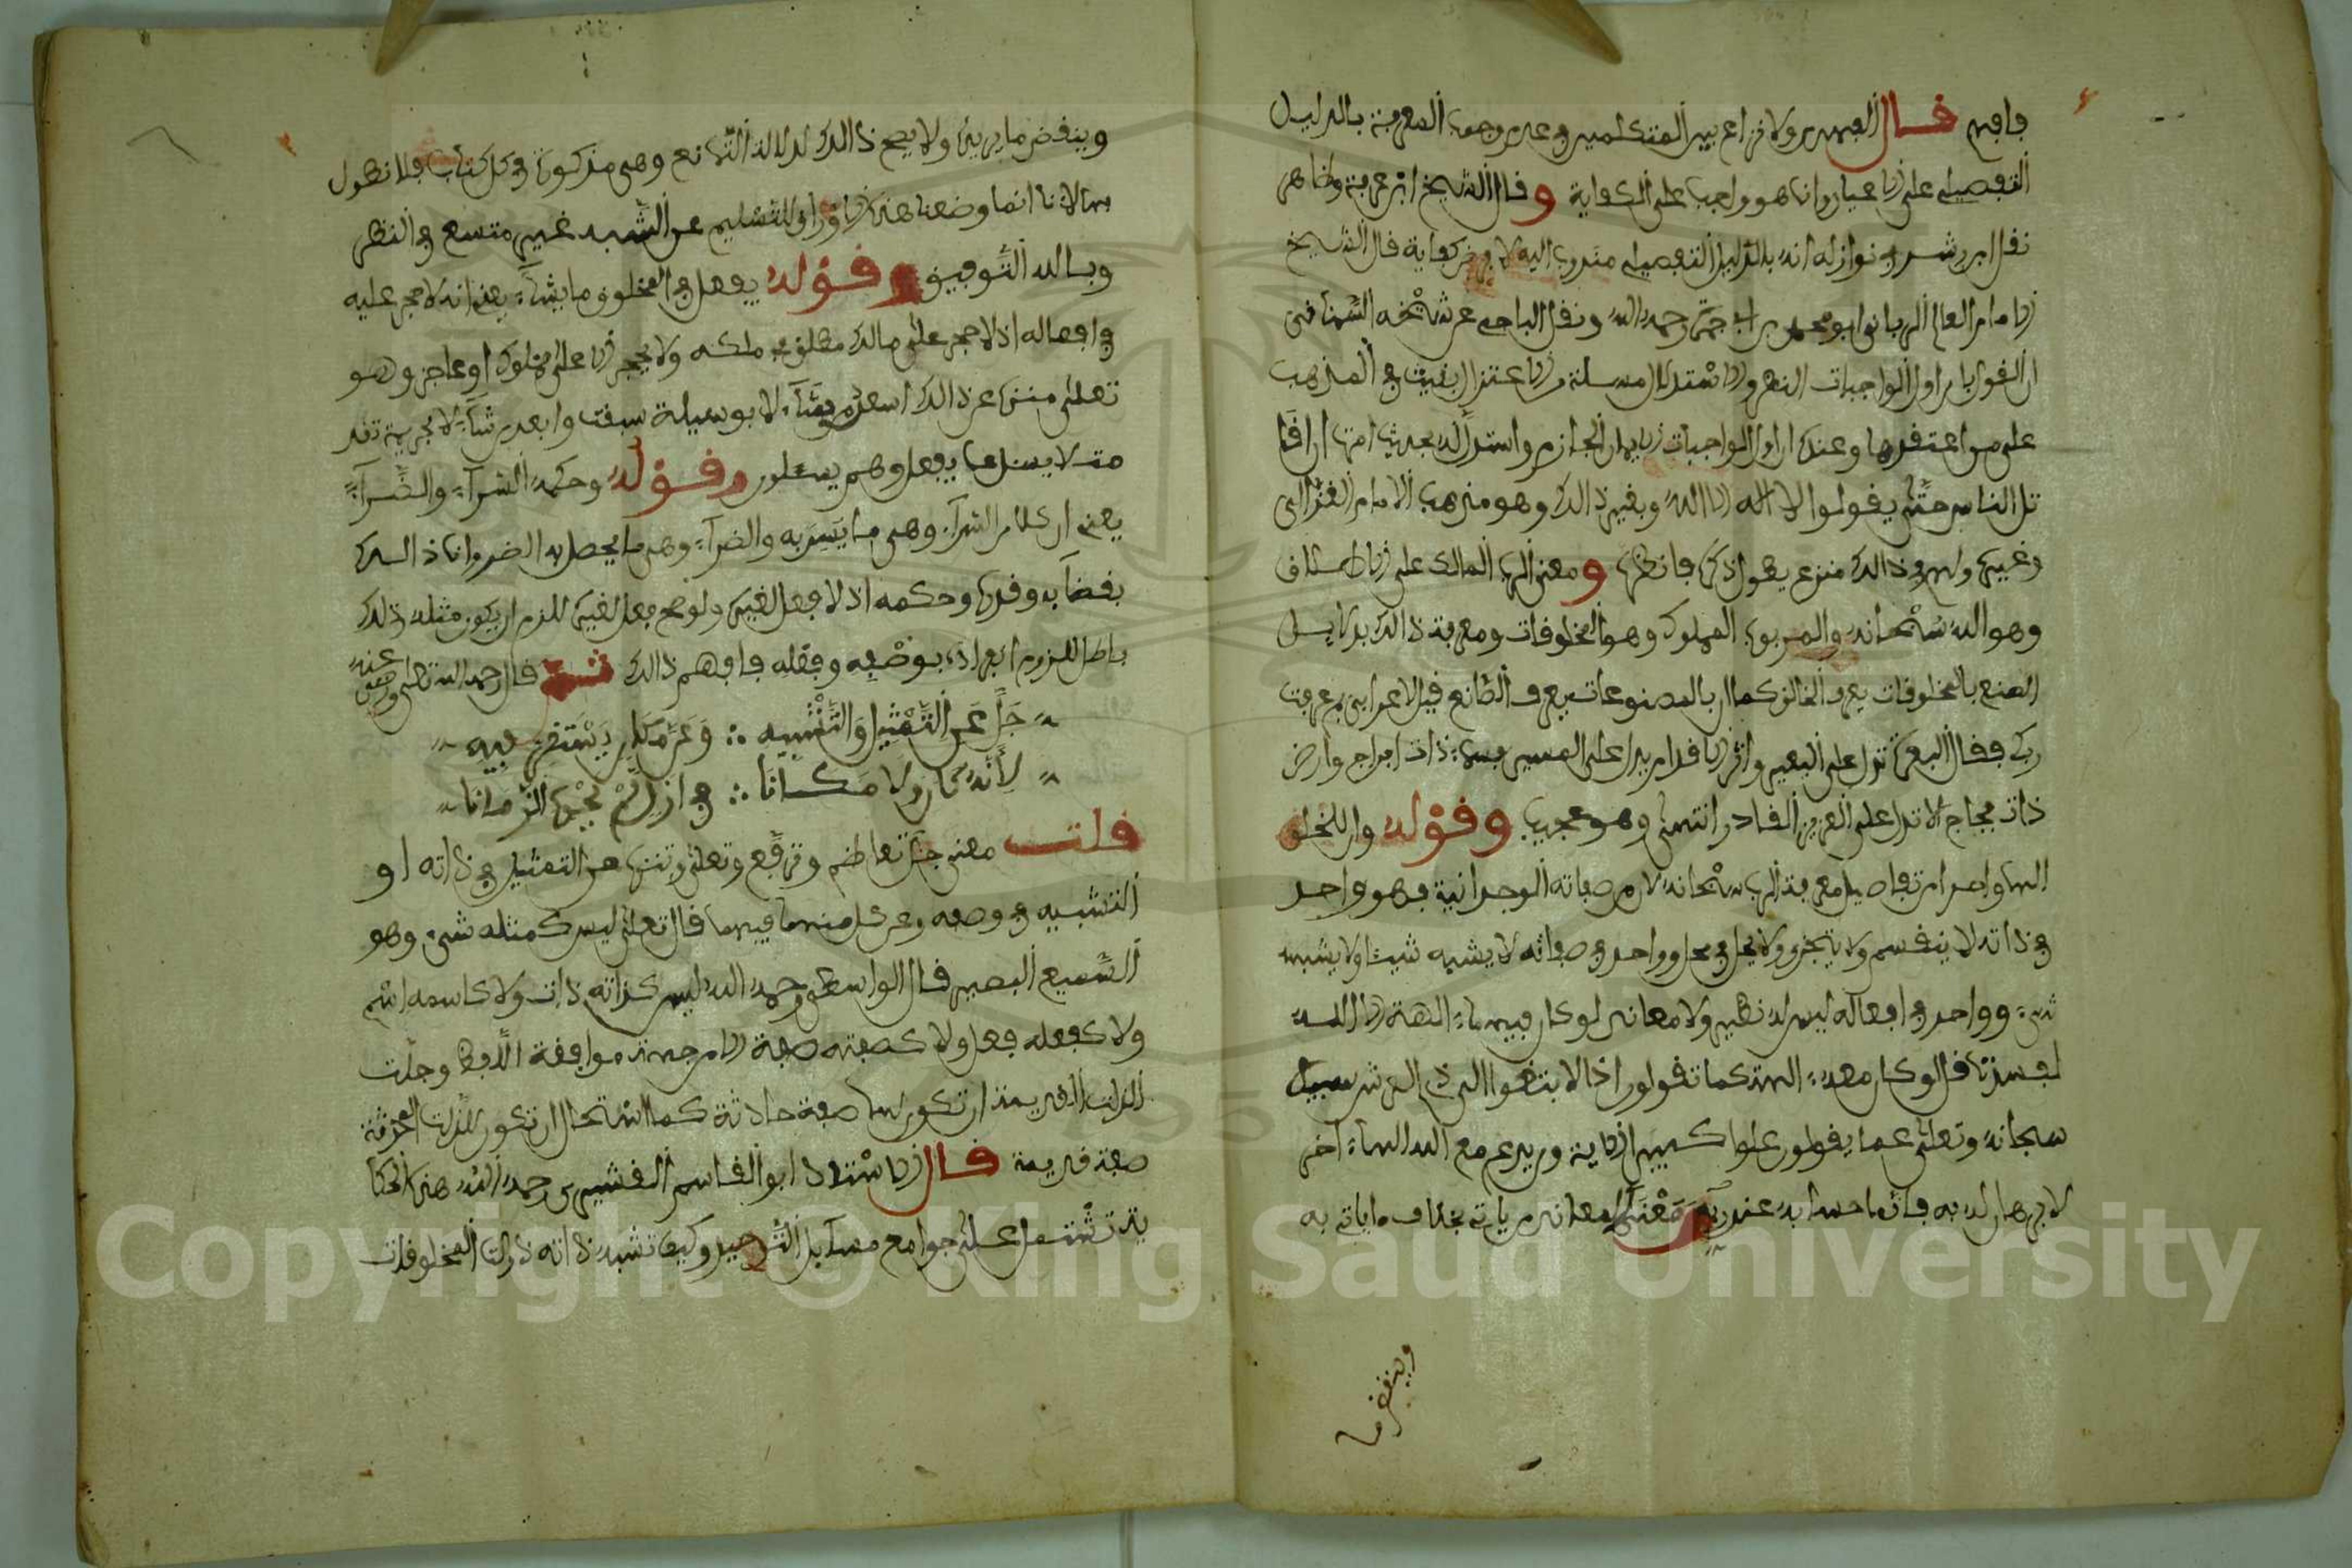 فافهم قال الفهري ولا نزاع بين المتكلمين في عدم وجوب المعرفة بالدليل
التفصيلي على الاعيان وانما هو واجب على الكفاية وقال الشيخ ابن عرفة وظاهر
نقل ابن رشد في نوازله انه بالدليل التفصيلي مندوب اليه لا فرض كفاية قال الشيخ
الامام العالم الرباني ابو محمد بن ابي جمرة رحمه الله ونقل الباجي عن شيخه السمناني
ان القول بان اول الواجبات النظر والاستدلال مسئلة من الاعتزال بقيت في المذهب
على من اعتقدها وعنده ان اول الواجبات الايمان الجازم واستدل له بحديث امرت ان اقا
تل الناس حتى يقولوا لا اله الا الله وبغير ذالك وهو مذهب الامام الغزالي
وغيره ولهم في ذالك منزع يطول ذكره فانظره ومعنى الرب المالك على الاطلاق
وهو الله سبحانه والمربوب المملوك وهو المخلوفات ومعرفة ذالك بدلايل
الصنع بالمخلوقات يعرف الخالق كما ان بالمصنوعات يعرف الصانع قيل لاعرابي بم عرفت
ربك فقال البعرة تدل على البعير واثر الاقدام يدل على المسير فسماء ذات ابراج وارض
ذات فجاج الا تدل على العزيز القادر انتهى وهو عجيب وقوله وان للخلق
الها واحدا من تفاصيل معرفة الرب سبحانه لان من صفاته الوحدانية فهو واحد
في ذاته لا ينقسم ولا يتجزى ولا يحل في محل وواحد في صفاته لا يشبه شيئا ولا يشبهه
شيء وواحد في افعاله ليس له نظير ولا معاند لو كان فيهما ءالهة الا الله
لفسدتا قل لو كان معه ءالهة كما تقولون اذا لابتغوا الى ذي العرش سبيلا
سبحانه وتعلى عما يقولون علوا كبيرا الاية ومن يدع مع الله الها ءاخر
لا برهان له به فانما حسابه عند ربه ومعنى المعاند من ياتي بخلاف ما ياتي به
وينقض
وينقض ما يريده ولا يصح ذالك لدلالة التمانع وهي مذكورة في كل كتاب فلا نطول
بها لانا انما وضعنا هذه الاوراق للتسليم عن الشبه غير متسع في النظر
وبالله التوفيق وقوله يفعل في المخلوق ما يشاء يعني انه لا حجر عليه
في افعاله اذ لا حجر على مالك مطلق في ملكه ولا يحجر الا على مملوك او عاجز وهو
تعلى منزه عن ذالك اسعد من شاء لا بوسيلة سبقت وابعد من شاء لا بجريمة تقد
مت لا يسئل عما يفعل وهم يسئلون وقوله وحكمه السراء والضراء
يعني ان كلا من السراء وهي ما يسر به والضراء وهي ما يحصل به الضر وانما ذالك
بقضايه وقدره وحكمه اذ لا فعل لغيره ولو صح فعل لغيره للزم ان يكون مثله وذلك
باطل للزوم انفراده بوصفه وفعله فافهم ذالك ثم قال رحمه الله تعلى ورضي عنه
جل عن التمثيل والتشبيه ∴ وعن مكان يستقر فيه
لانه كان ولا مكانا ∴ في ازل لم يحوه الزمانا
قلت معنى جل تعاظم وترفع وتعلى وتنزه عن التمثيل في ذاته او
التشبيه في وصفه وعن كل منهما فيهما قال تعلى ليس كمثله شيء وهو
السميع البصير قال الواسطي رحمه الله ليس كذاته ذات ولا كاسمه اسم
ولا كفعله فعل ولا كصفته صفة الا من جهة موافقة اللفظ وجلت
الذات القديمة ان تكون لها صفة حادثة كما استحال ان تكون للذات المحدثة
صفة قديمة قال الاستاذ ابو القاسم القشيري رحمه الله هذه الحكا
ية تشتمل على جوامع مسايل التوحيد وكيف تشبه ذاته ذوات المخلوقات
Copyright © King Saud University